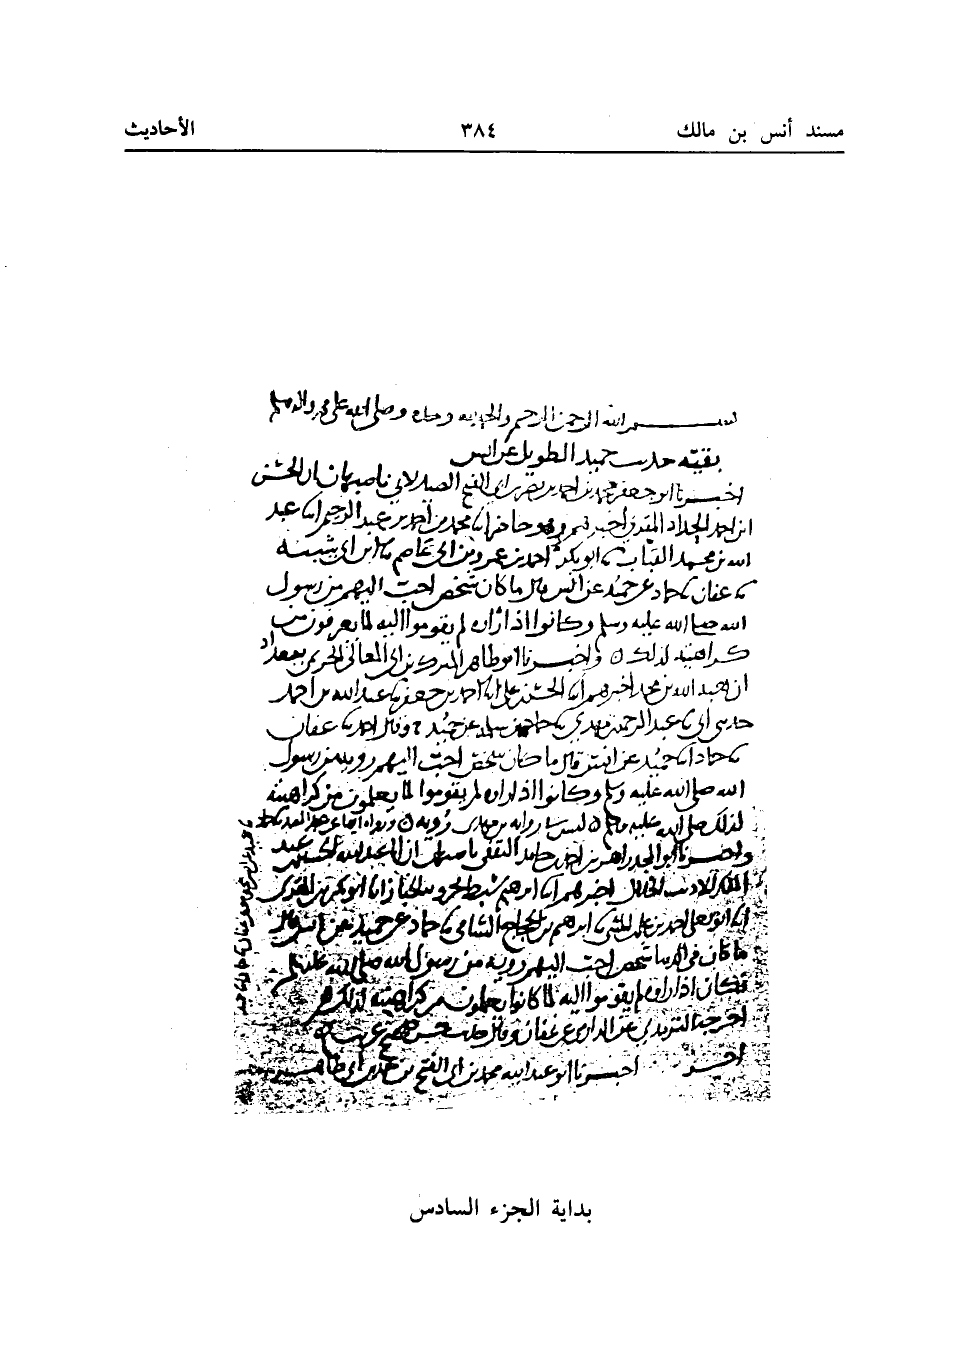 مسند أنس بن مالك ٣٨٤ الأحاديث
بسم الله الرحمن الرحيم والحمد لله وحده وصلى الله على محمد واله وسلم
بقية حديث حميد الطويل عن انس
اخبرنا ابو جعفر محمد بن احمد بن نصر بن ابي الفتح الصيدلاني باصبهان ان الحسن
ابن احمد الحداد المقرئ اخبرهم وهو حاضر انا محمد بن احمد بن عبد الرحيم انا عبد
الله بن محمد القباب انا ابو بكر احمد بن عمرو بن ابي عاصم نا ابن ابي شيبة
نا عفان نا حماد عن حميد عن انس قال ما كان شخص احب اليهم من رسول
الله صلى الله عليه وسلم وكانوا اذا رأوه لم يقوموا اليه لما يعرفون من
كراهيته لذلك ٥ واخبرنا ابو طاهر المبارك بن ابي المعالي الحريمي ببغداد
ان هبة الله بن محمد اخبرهم انا الحسن بن علي انا احمد بن جعفر نا عبد الله بن احمد
حدثني ابي نا عبد الرحمن بن مهدي نا حماد بن سلمة عن حميد ح وقال احمد نا عفان
نا حماد انا حميد عن انس قال ما كان شخص احب اليهم رويه من رسول
الله صلى الله عليه وسلم وكانوا اذا راوه لم يقوموا لما يعلمون من كراهيته
لذلك صلى الله عليه وسلم ٥ ليس في رواية بن مهدي رؤية ٥
واخبرنا ابو المجد زاهر بن احمد بن حامد الثقفي باصبهان ان ابا عبد الله الحسين بن عبد
الملك الاديب الخلال اخبرهم انا ابرهيم سبط بحرويه انا ابو بكر بن المقرئ
انا ابو يعلى احمد بن علي بن المثنى نا ابرهيم بن الحجاج الشامي نا حماد عن حميد عن انس قال
ما كان في الدنيا شخص احب اليهم روية من رسول الله صلى الله عليه وسلم
فكان اذا راوه لم يقوموا اليه لما كانوا يعلمون من كراهيته لذلك
اخرجه الترمذي عن الدارمي عن عفان وقال حديث حسن صحيح غريب
اخبرنا ابو عبد الله محمد بن ابي الفتح بن
بداية الجزء السادس